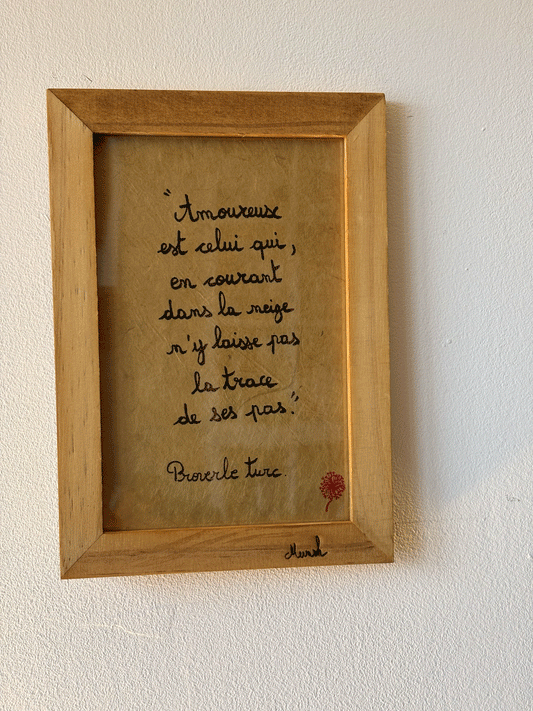 "Amoureux
est celui qui,
en courant
dans la neige
n'y laisse pas
la trace
de ses pas."
Proverbe turc.